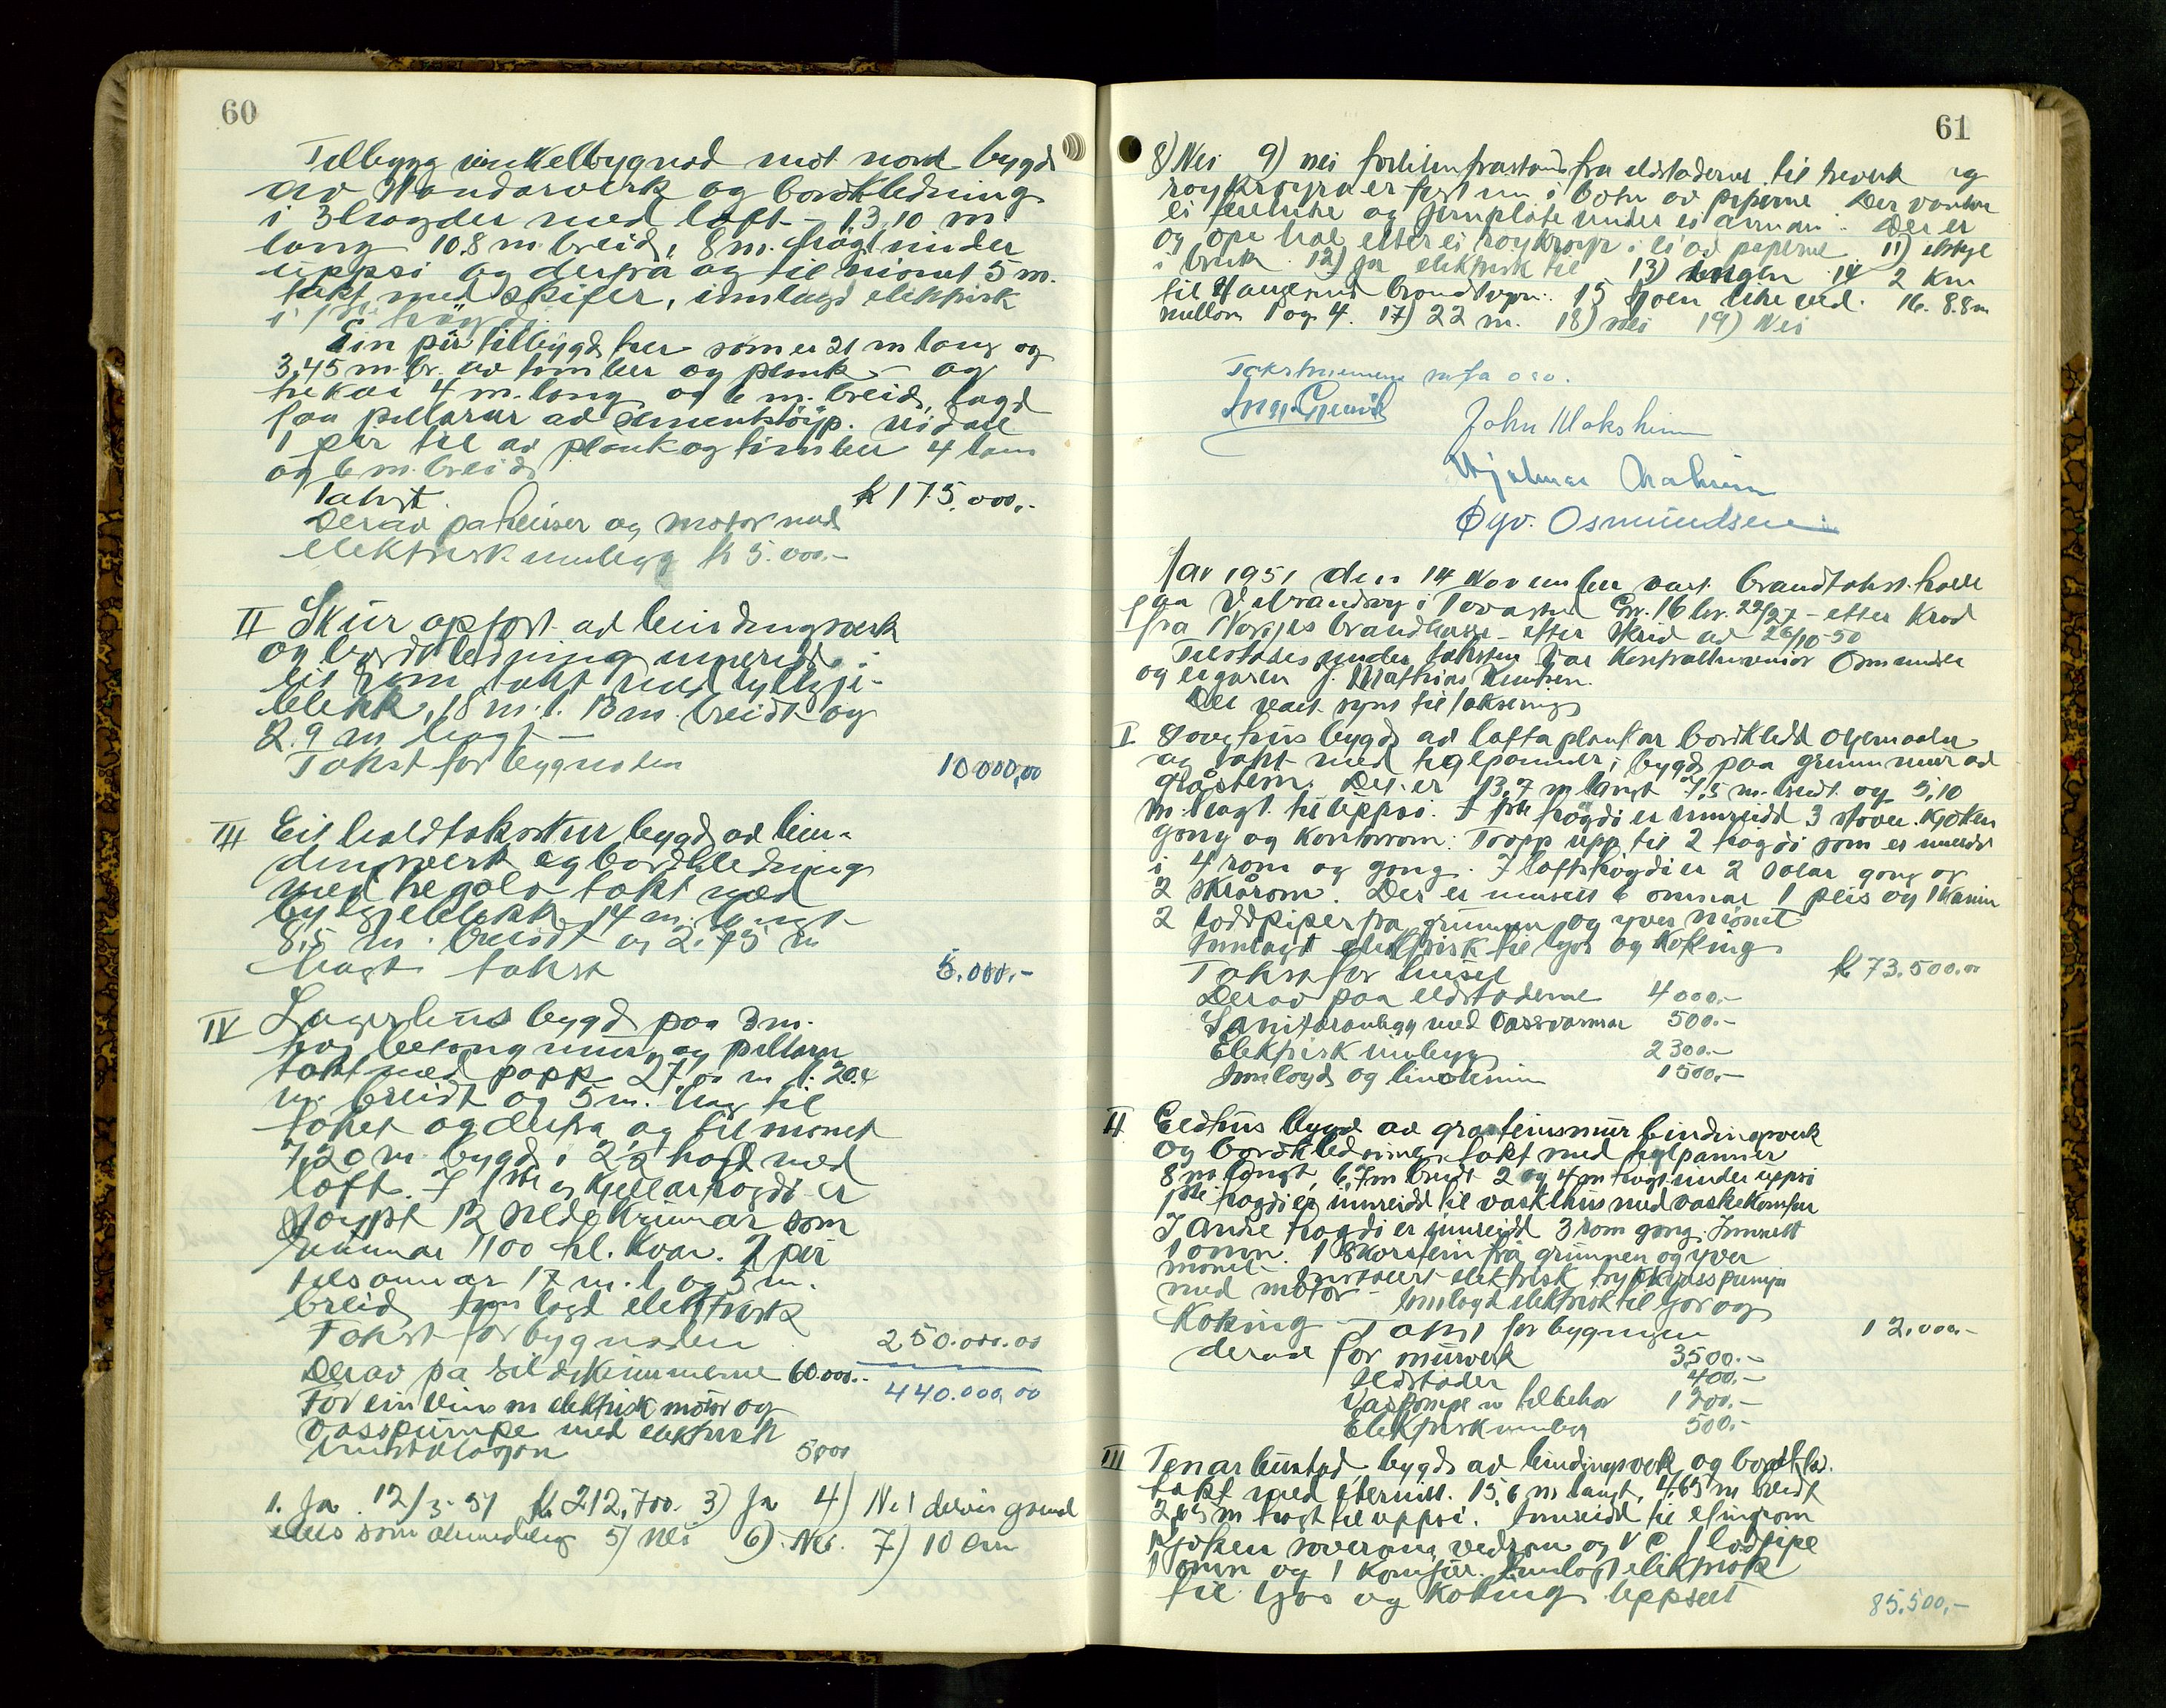 60
Tilbygg vinkelbygnad mot nord bygd
av standarverk og bordkledning
i 3 høgder med loft - 13,10 m
lang 10.8 m. breid, 8 m. högt under
uppsi og derfrå og til mönet 5 m.
tekt med skifer, innlagd elektrisk
i 1ste högd.
Ein pir tilbygd her som er 21 m lang og
3,45 m. br. av timber og plank - og
trekai 4 m. lang og 6 m. breid, lagd
paa pillarar ad sementstöyp. vidare
1 pir til av plank og timber 4 lang
og 6 m. breid
Takst. k 175.000,-
Derav pa heiser og motor med
elektrisk innlegg kr 5.000.-
II Skur opført ad bindingverk
og bordkledning innreidd i
eit rom tekt med bylgje-
blekk, 18 m. l. 13 m. breidt og
2.9 m høgt -
Takst for bygnaden 10 000,00
III Eit halvtakskur bygd ad bin-
dingsverk og bordkledning
med tregolv tekt med
bylgjeblekk 14 m. langt
8,5 m. breidt og 2.75 m
høgt takst 5.000.-
IV Lagerhus bygd paa 3 m.
høg betong mur og pillarar
tekt med papp 27,00 m l. 20.4
m. breidt og 5 m. høg til
taket og derfra og til mönet
7,20 m. bygd i 2½ høgd med
loft. I 1ste og kjellarhøgdi er
støypt 12 sildekummar som
rummar 1100 hl. kvar. 2 pir
tilsamar 17 m. l. og 5 m.
breid, innlagd elektrisk
Takst for bygnaden 250.000.00
Derav på sildekummerne 60.000.- 440.000,00
For ein vins m elektrisk motor og
vasspumpe med elektrisk
innstalasjon 5000
1. Ja 12/3-51 k. 212,700. 3) Ja 4) Nei delvis grend
elles som almindelig 5) Nei 6) Nei. 7) 10 cm
61
8) Nei 9) nei forliten frastand fra eldstaderne til treverk og
røykrøyra er ført inn i botn av piperne Der vantar
ei feieluke og jernplate under ei annan. Der er
og ope hol etter ei røykrøyr i ei av piperne 11) ikkje
i bruk 12) Ja elektrisk til 13) ingen 14 2 km
til Haugesund brandvern. 15 Koen like ved. 16. 8.8 m
mellom 1 og 4. 17) 22 m. 18) nei 19) Nei
Takstnemnda
John Waksheim
Hjalmar
Øyv. Osmundsen
Aar 1951 den 14 November vart brandtakst halde
paa Vibrandsøy i Torvastad Gr. 16 br. 22/27 - etter krav
fra Norges brandkasse - etter skriv ad 26/10-50
Tilstades under taksten var kontrollinspektør Osmundsen
og eigaren J. Mathias Knutsen.
Det vart synt til taksering
I Sovehus bygd ad lafta plankar bordkledd og maalar
og tekt med teglpanner, bygd paa grunnmur ad
gråstein. Det er 13,7 m langt 7,5 m. breidt og 5,10
m. høgt til uppsi. I 1ste högdi er innreidd 3 stover. kjøken
gong og kontorrom. Tropp upp til 2 høgdi som er innreidd
i 4 rom og gong. I loftshøgdi er 2 salar gong og
2 skrårom. Der er innsett 6 omnar 1 peis og 1 kamin
2 loddpiper fra grunnen og yver mönet
Innlagt elektrisk til ljos og koking
Takst for huset k 73.500.00
Derav paa eldstaderne 4000.-
Sanitæranlegg med vassvarmar 500.-
Elektrisk innlegg 2300.-
Innlagd og linoleum 1500.-
II Eldhus bygd ad graasteinsmur bindingsverk
og bordkledning tekt med teglpanner
8 m langt, 6,7 m breidt 2 og 4 m høgt under uppsi
1ste høgdi er innreidd til vaskhus med vaskekomfur
I andre høgdi er innreidd 3 rom gong. Innsett
1 omn. 1 skorstein frå grunnen og yver
mönet. Installert elektrisk trykkvasspumpe
med motor - Innlagd elektrisk til ljos og
koking - Takst for bygningen 12.000.-
derav for murverk 3500.-
Eldstader 400.-
Vaspompe m tilbehør 1200.-
Elektrisk innlegg 500.-
III Tenarbustad bygd ad bindingsverk og bordkled.
tekt med eternitt. 15,6 m langt, 4,65 m breidt
2,65 m høgt til uppsi. Innreidd til
kjøken soverom, vedrom og V C 1 lodpipe
1 omn og 1 komfur. Innlagt elektrisk
til ljos og koking Uppsett 85.500,-